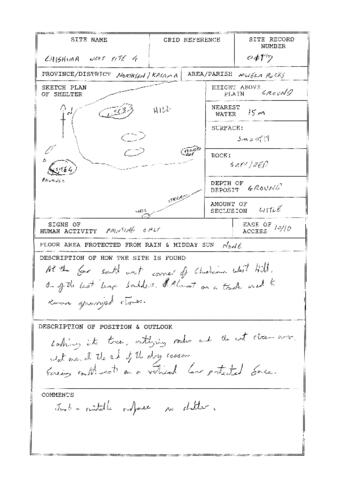 SITE NAME GRID REFERENCE SITE RECORD
NUMBER
SITE 4
PROVINCE/DISTRICT NORTHERN/KASAMA AREA/PARISH ROCKS
SKETCH PLAN
OF SHELTER
HEIGHT ABOVE
PLAIN GROUND
HILL
NEAREST
WATER 15m
SURFACE:
SMOOTH
ROCK:
DEPTH OF
DEPOSIT GROUND
AMOUNT OF
SECLUSION LITTLE
SIGNS OF
HUMAN ACTIVITY PAINTING ONLY
EASE OF
ACCESS 10/10
FLOOR AREA PROTECTED FROM RAIN & MIDDAY SUN NONE
DESCRIPTION OF HOW THE SITE IS FOUND
At the far south west corner of West Hill.
On of the last large boulders. Almost on a track used to
remove quarried stones.
DESCRIPTION OF POSITION & OUTLOOK
Looking into trees, outlying rocks and the
wet at the end of the dry season
Facing on a vertical protected face.
COMMENTS
Just a suitable surface no shelter.